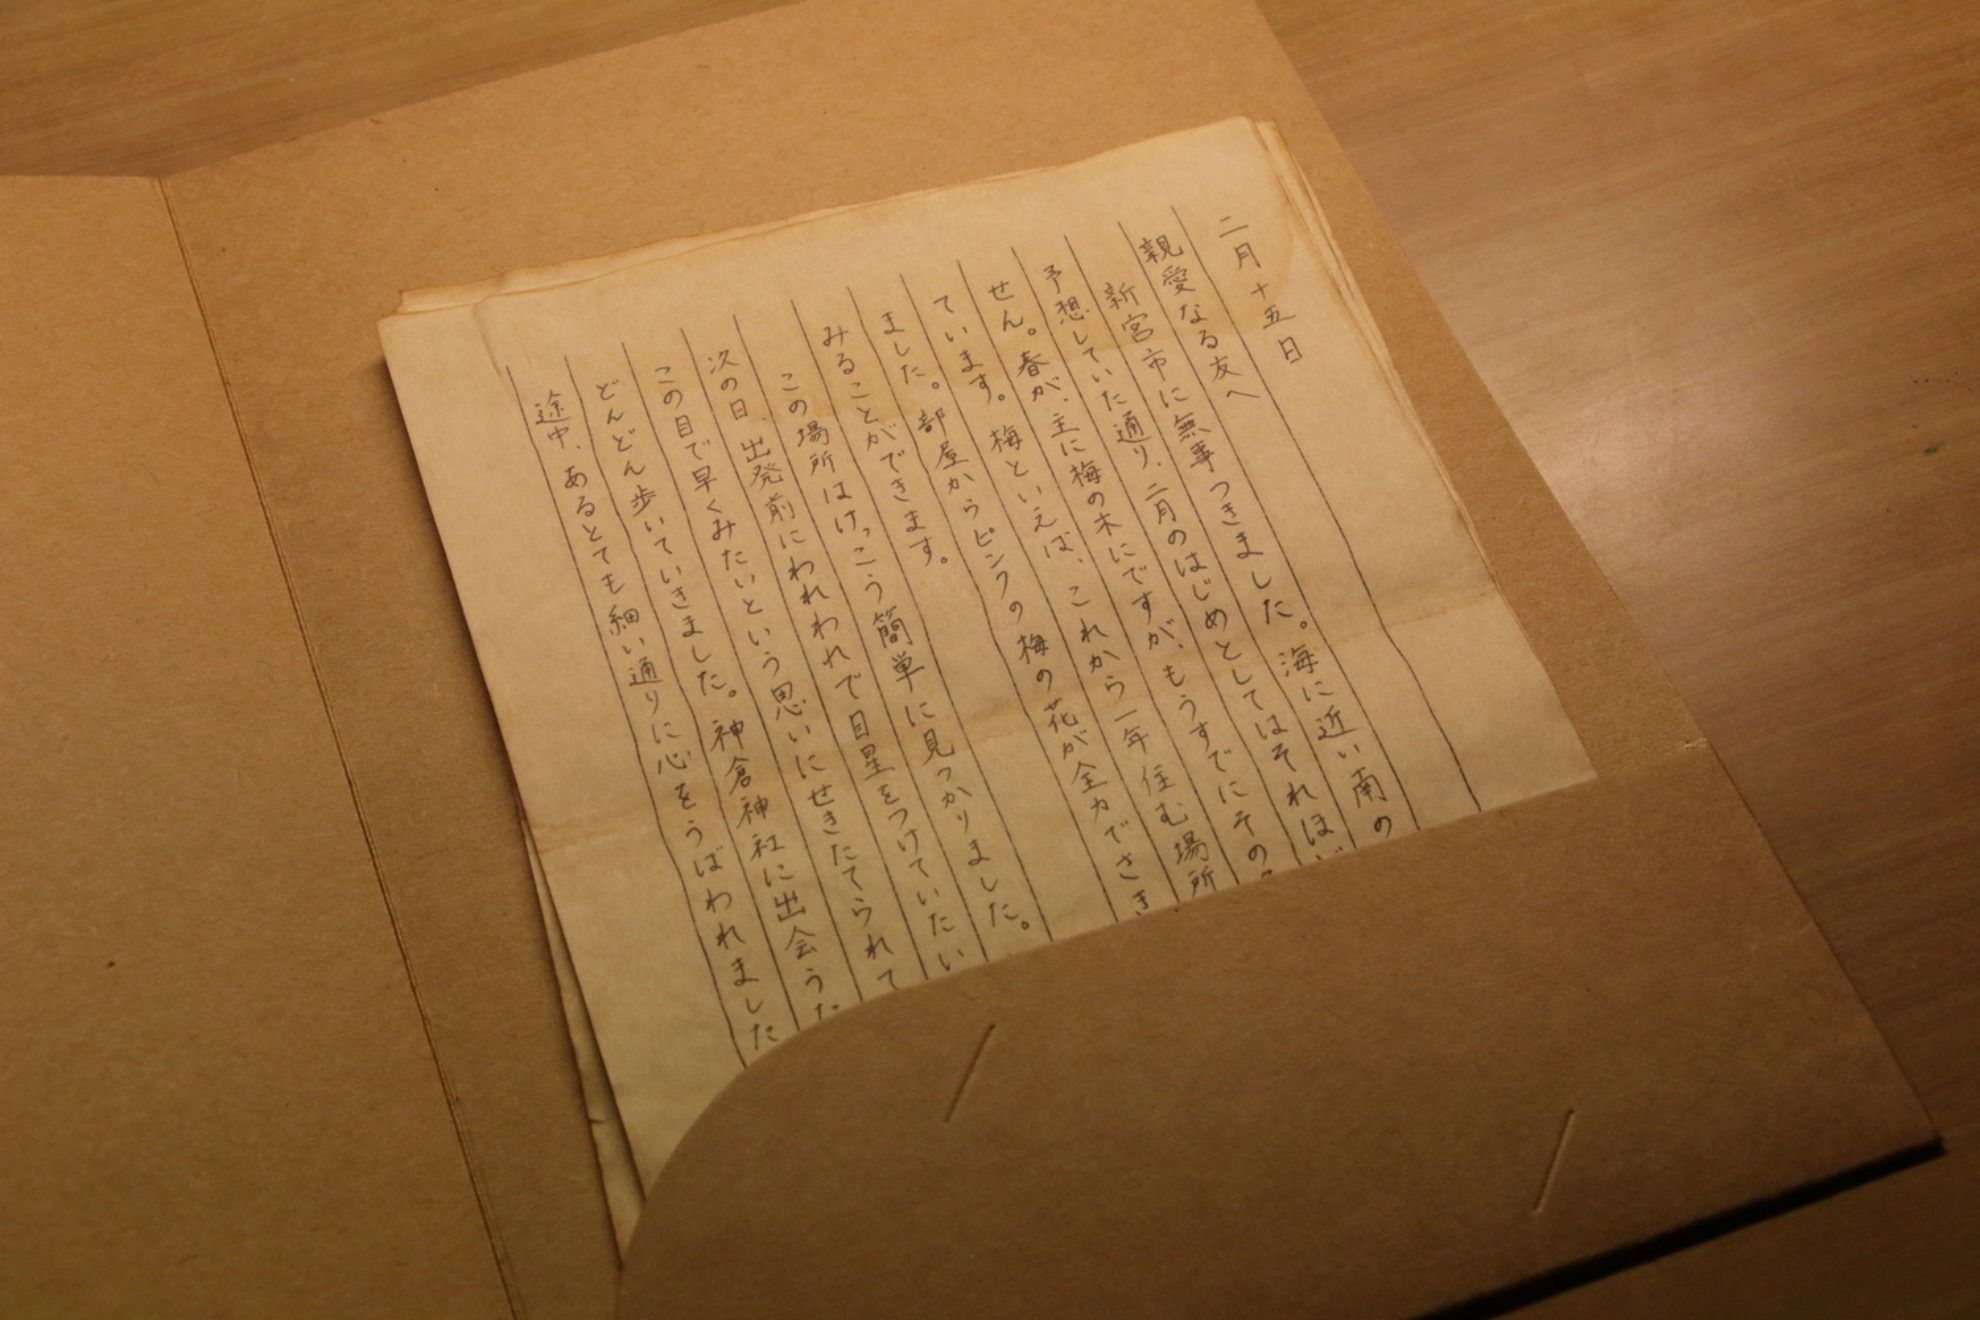 二月十五日
親愛なる友へ
新宮市に無事つきました。海に近い南の
予想していた通り、二月のはじめとしてはそれほど
せん。春が、主に梅の木にですが、もうすでにその
ています。梅といえば、これから一年住む場所
ました。部屋からピンクの梅の花が全力でさき
みることができます。
この場所はけっこう簡単に見つかりました。
次の日、出発前にわれわれで目星をつけていたい
この目で早くみたいという思いにせきたてられて
どんどん歩いていきました。神倉神社に出会うた
途中、あるとても細い通りに心をうばわれました